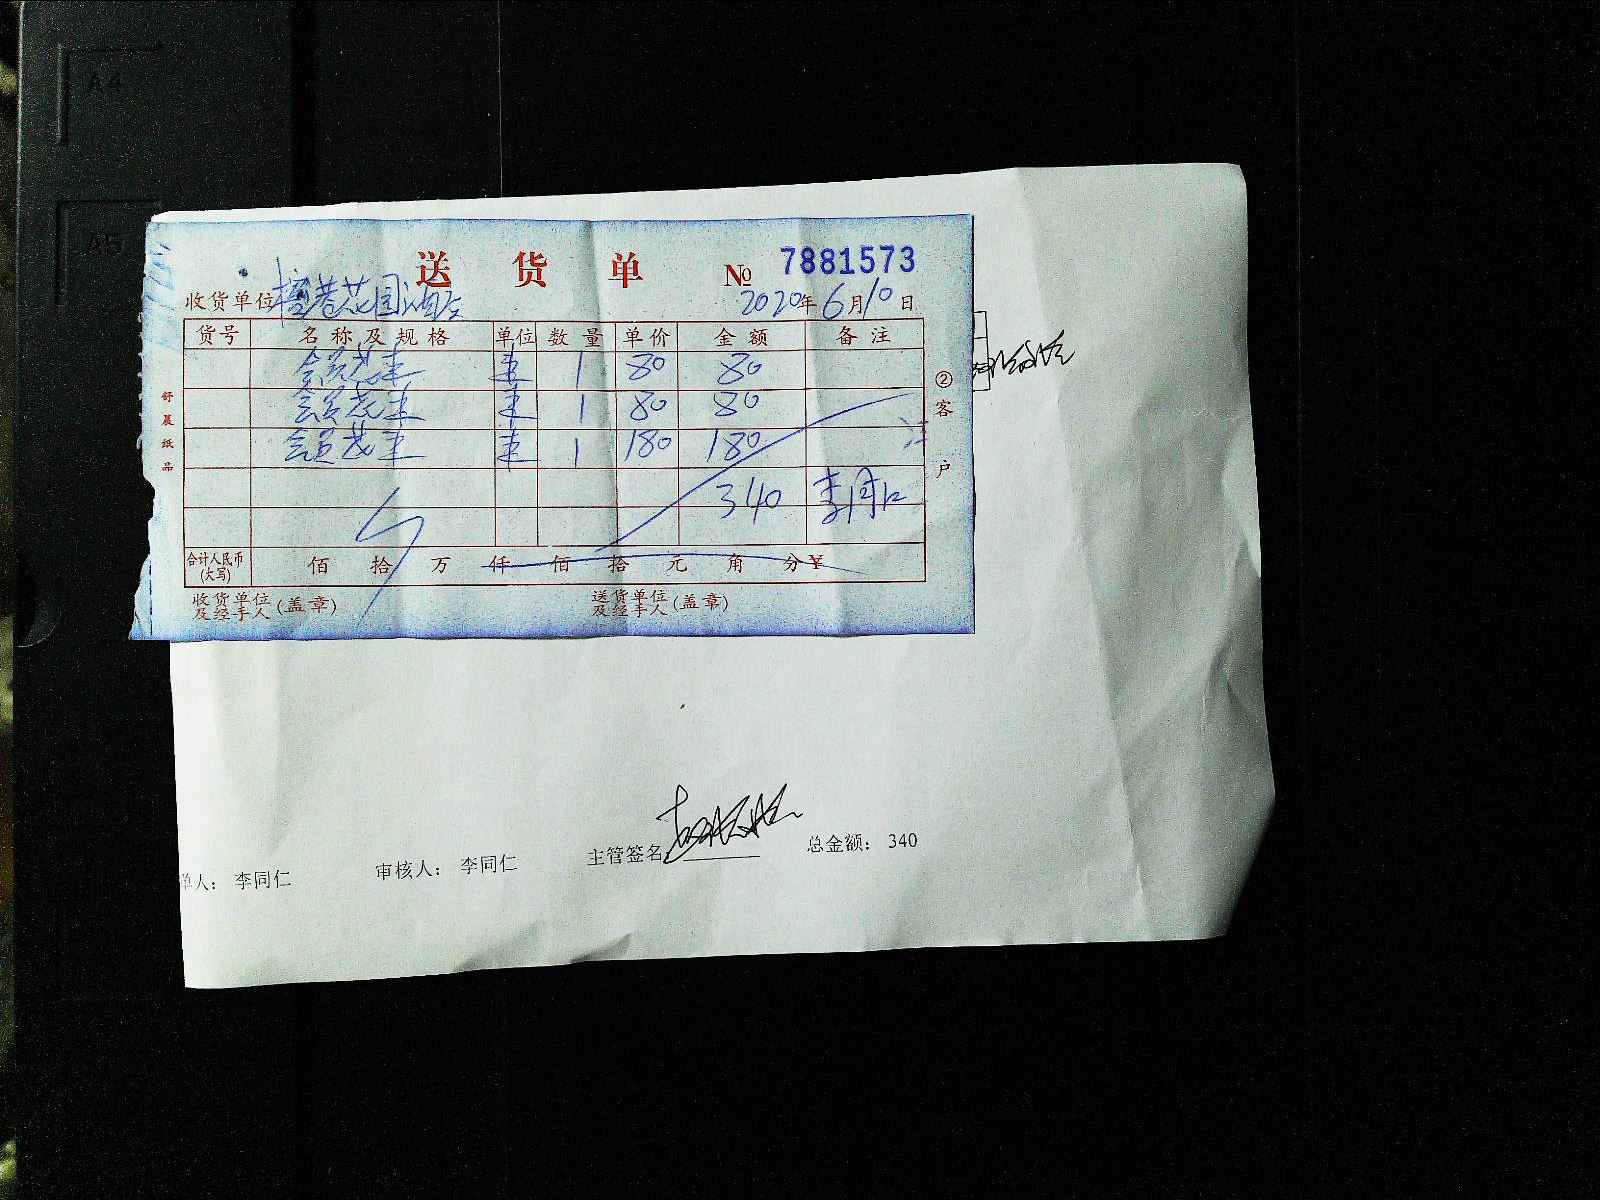 A4
A5
送货单 № 7881573
收货单位 花园酒店 2020年6月10日
货号 名称及规格 单位 数量 单价 金额 备注
会员花束 束 1 80 80
会员花束 束 1 80 80
会员花束 束 1 180 180
340 李同仁
合计人民币(大写) 佰 拾 万 仟 佰 拾 元 角 分 ¥
收货单位及经手人(盖章) 送货单位及经手人(盖章)
舒晨纸品
②客户
单人: 李同仁 审核人: 李同仁 主管签名 总金额: 340